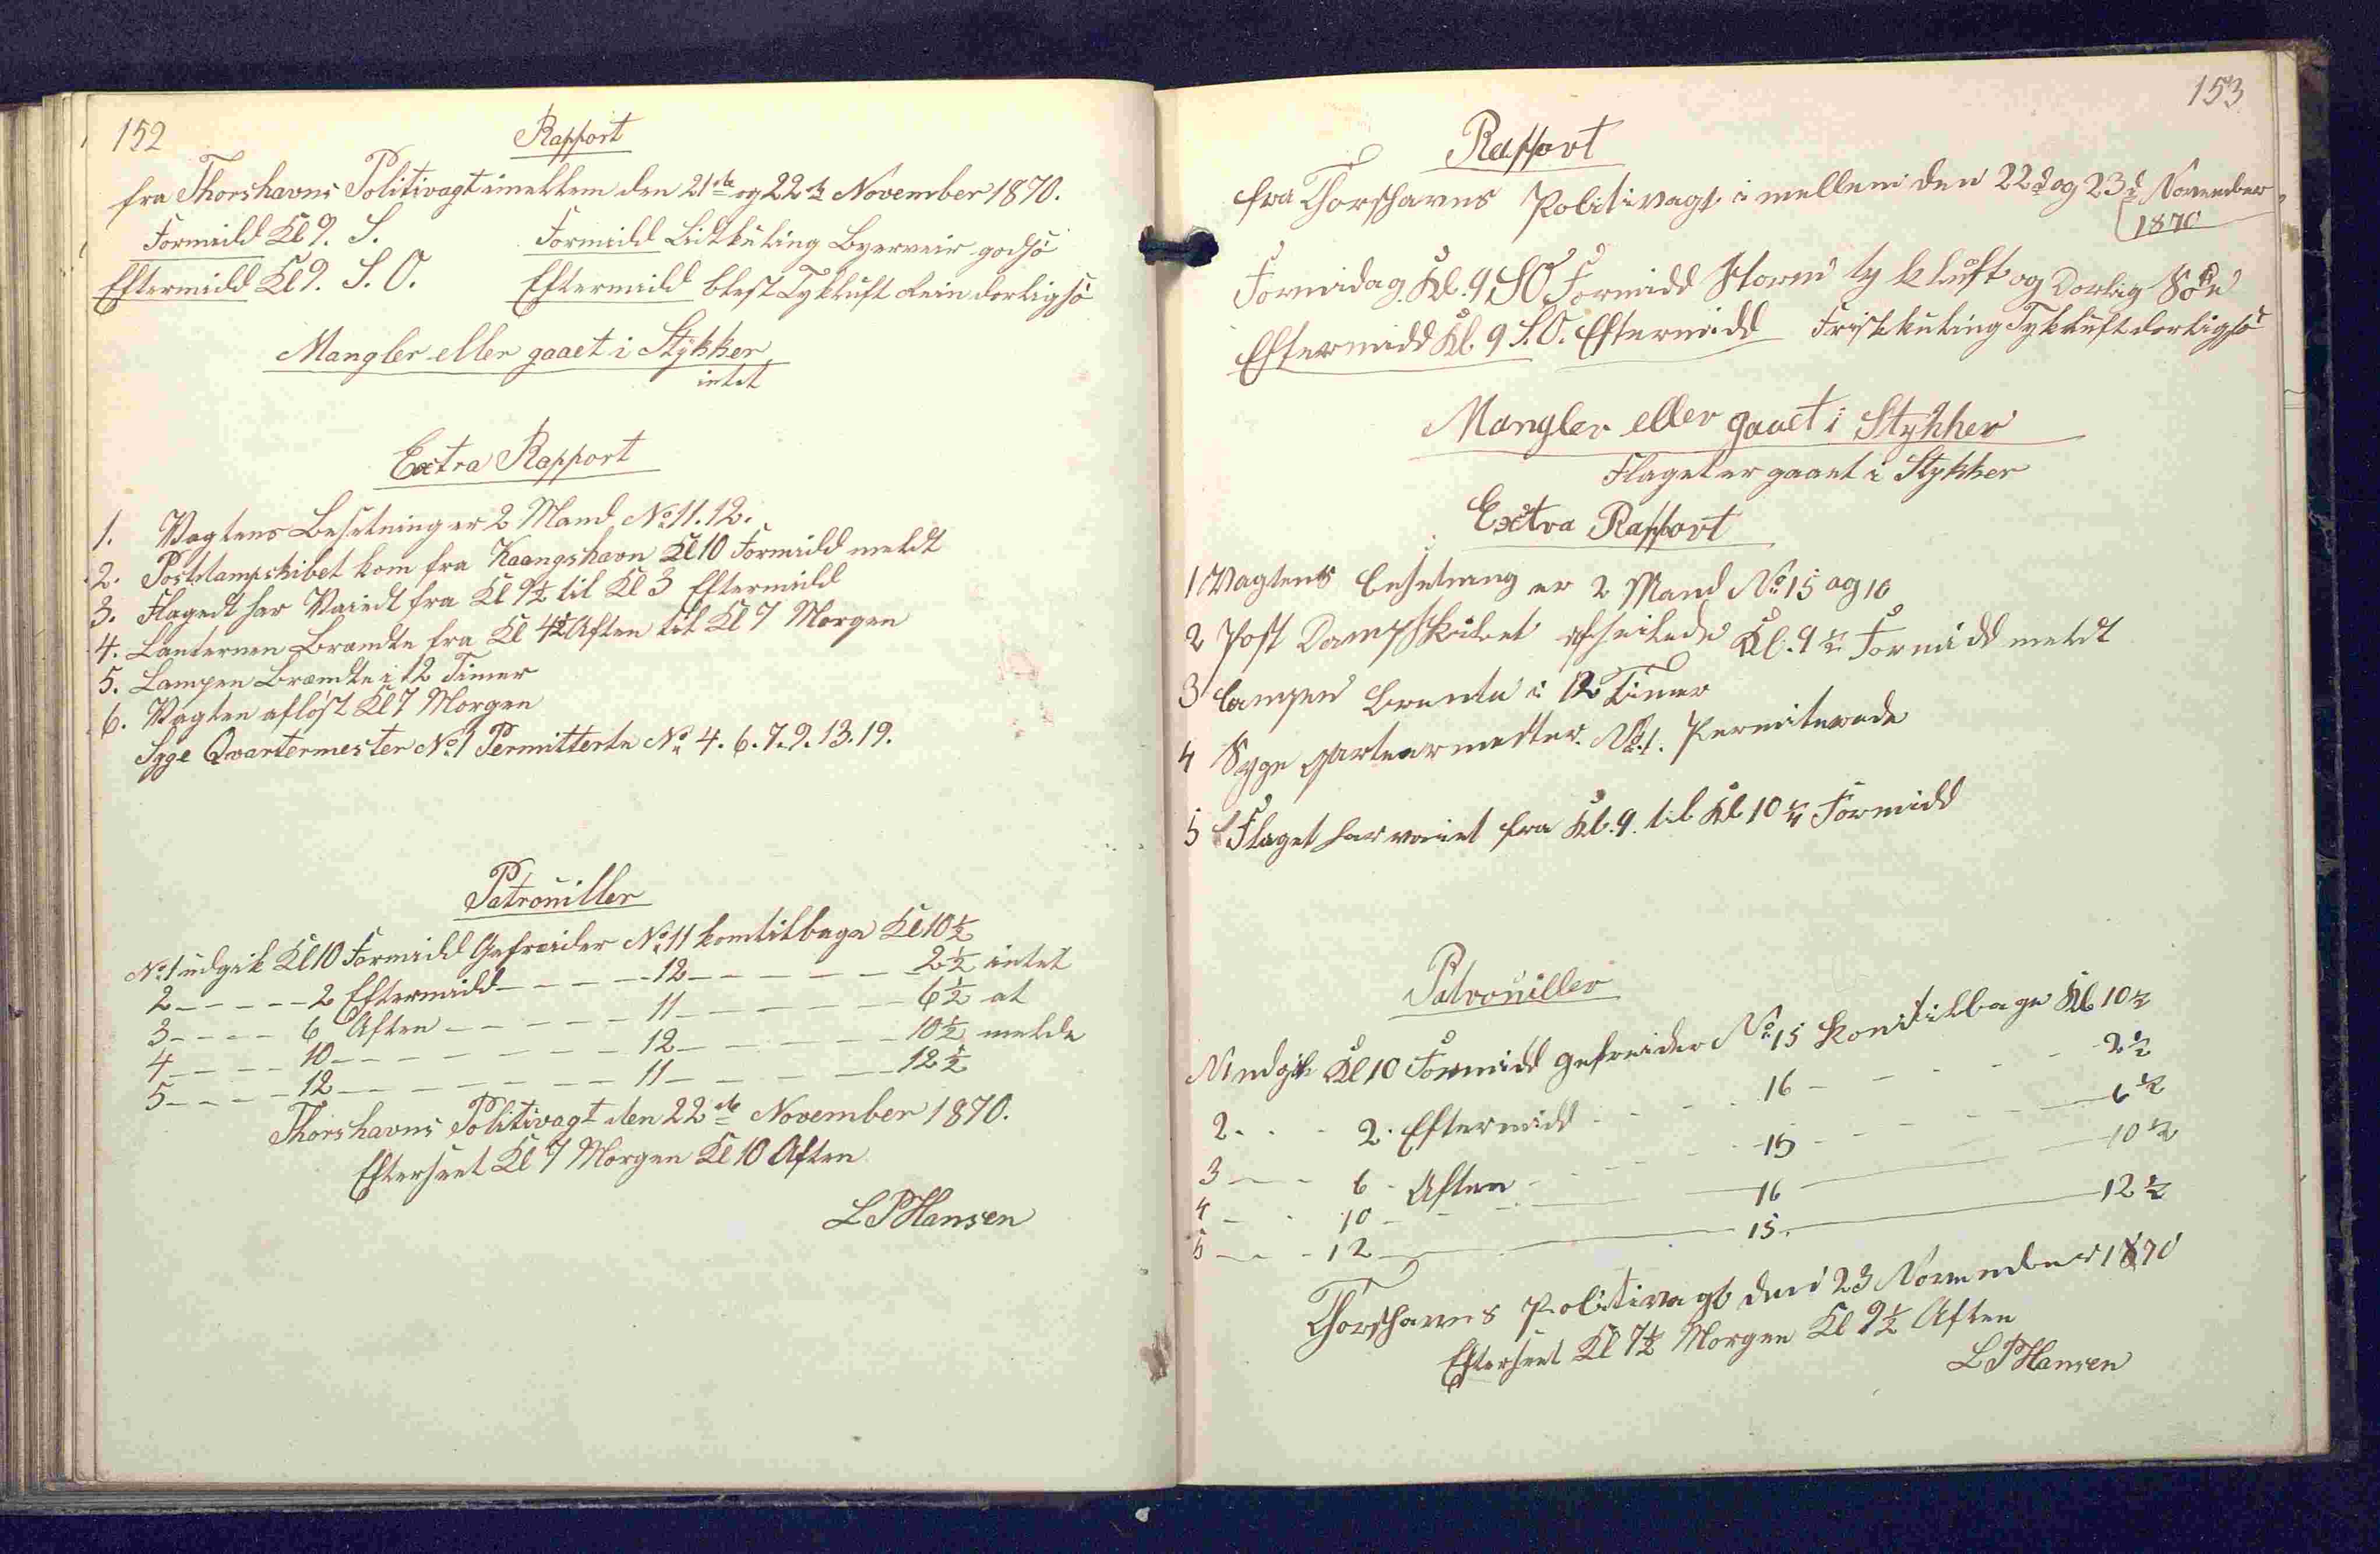 152
Rapport
fra Thorshavns Politivagt imellem den 21de og 22de November 1870.
Formidd Kl 9. S. Formidd Lidkuling Byerveir godsö
Eftermidd Kl 9. S. O. Eftermidd blest Tykluft Rein dorligsö
Mangler eller gaaet i Stykker
intet
Extra Rapport
1. Vagtens Besetning er 2 Mand No 11. 12.
2. Postdampskibet kom fra Kaangshavn Kl 10 Formidd meldt
3. Flagedt har Vaiedt fra Kl 9½ til Kl 3 Eftermidd
4. Lanternen Brændte fra Kl 4½ Aften til Kl 7 Morgen
5. Lampen Brændte i 12 Timer
6. Vagten aflöst Kl 7 Morgen
Syge Qvartermester No 1 Permitterte No 4. 6. 7. 9. 13. 19.
Patrouiller
No 1 udgik Kl 10 Formidd Gefreider No 11 kom tilbage Kl 10½
2 - - - - - 2 Eftermidd - - - - - 12 - - - - - - 2½ intet
3 - - - - 6 Aften - - - - - - 11 - - - - - - 6½ at
4 - - - - 10 - - - - - - - - 12 - - - - - - 10½ melde
5 - - - - 12 - - - - - - - - 11 - - - - - - 12½
Thorshavns Politivagt den 22de November 1870.
Efterseet Kl 7 Morgen Kl 10 Aften
L P Hansen
153
Rapport
fra Thorshavns Politivagt i mellem den 22d og 23d November
1870
Formidag. Kl. 9 SO Formidd Storm tyk luft og Dorlig Söe
Eftermidd Kl. 9 S. O. Eftermidd Friskkuling Tykluft dorligsö
Mangler eller gaaet i Stykker
Flaget er gaaet i Stykker
Extra Rapport
1 Vagtens besetning er 2 Mand No 15 og 16
2 Post Dampskibet afseilede Kl. 9½ Formidd meldt
3 lampen brente i 12 Timer
4 Syge qarteermester. No. 1. Permiterede
5 Flaget har vaiet fra Kl. 9. til Kl 10¼ Formidd
Patrouiller
N1 udgik Kl 10 Formidd gefreider No 15 kom tilbage Kl 10½
2. - - 2. Eftermidd - - - - 16 - - - - - 2½
3 - - - 6 - Aften - - - - 15 - - - - 6½
4 - - 10 - - - - 16 - - - - 10½
5 - - - 12 - - - - 15. - - - - 12½
Thorshavns Politivagt den 23 November 1870
Efterseet Kl 7½ Morgen Kl 9½ Aften
L P Hansen